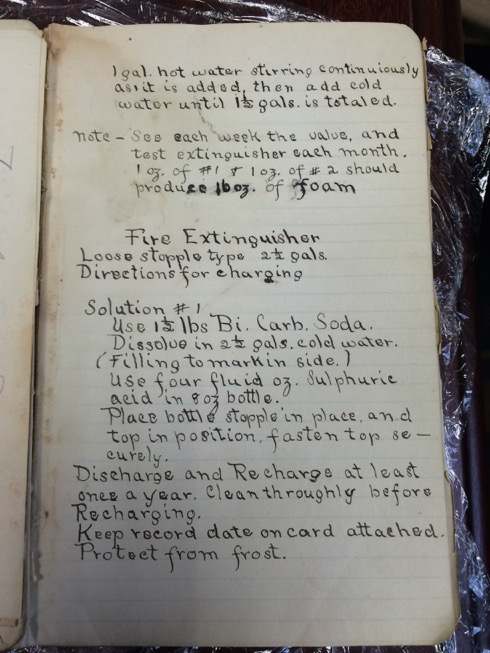 1 gal. hot water stirring continuiously
as it is added, then add cold
water until 1½ gals. is totaled.
Note - See each week the value, and
test extinguisher each month.
1 oz. of #1 & 1 oz. of #2 should
produce 16 oz. of foam
Fire Extinguisher
Loose stopple type 2½ gals.
Directions for charging
Solution #1
Use 1½ lbs Bi. Carb. Soda.
Dissolve in 2½ gals. cold water.
(Filling to mark in side.)
Use four fluid oz. Sulphuric
acid in 8 oz bottle.
Place bottle stopple in place, and
top in position, fasten top se-
curely.
Discharge and Recharge at least
once a year. Clean throughly before
Recharging.
Keep record date on card attached.
Protect from frost.